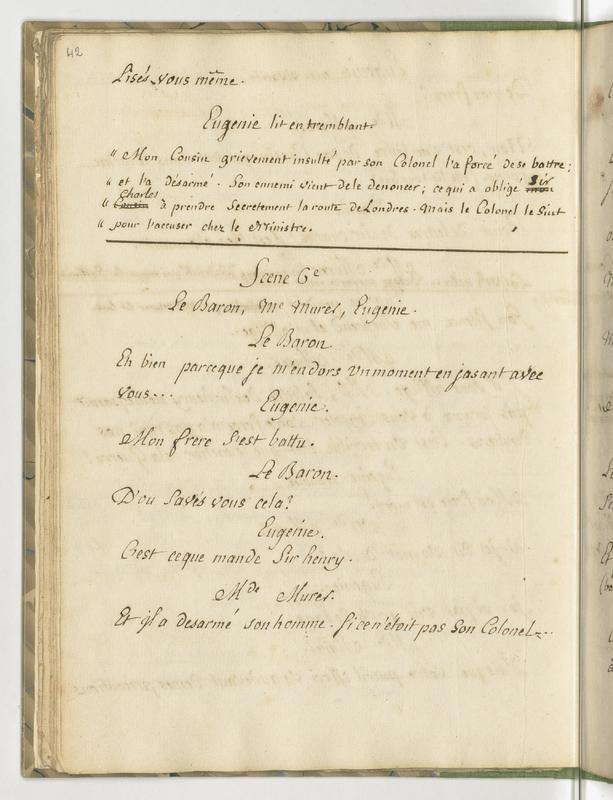 42
Lisés vous même.
Eugenie lit en tremblant.
" Mon Cousin grievement insulté par son Colonel l'a forcé de se battre;
" et l'a désarmé. Son ennemi vient de le denoncer; ce qui a obligé Sir mon
" Charles Cousin à prendre Secretement la route de Londres. Mais le Colonel le Suit
" pour l'accuser chez le Ministre.
Scene 6e
Le Baron, Me Murer, Eugenie.
Le Baron
Eh bien parceque je m'endors un moment en jasant avec
vous...
Eugenie.
Mon frere S'est battu.
Le Baron.
D'ou Savés vous cela?
Eugenie.
C'est ceque mande Sir henry.
Mde Murer.
Et il a desarmé son homme. Si ce n'étoit pas Son Colonel...